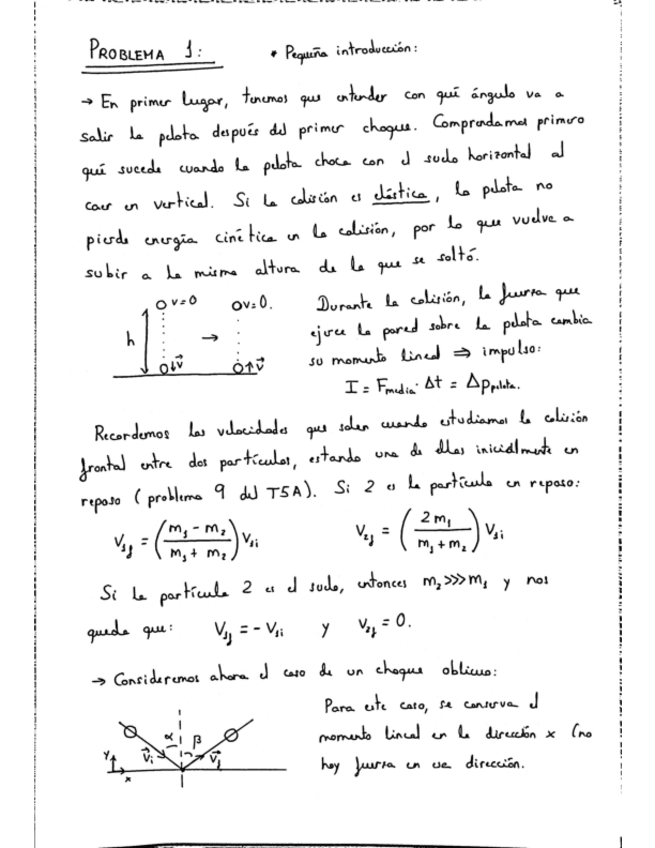 PROBLEMA 1: * Pequeña introducción:
→ En primer lugar, tenemos que entender con qué ángulo va a
salir la pelota después del primer choque. Comprendamos primero
qué sucede cuando la pelota choca con el suelo horizontal al
caer en vertical. Si la colisión es elástica, la pelota no
pierde energía cinética en la colisión, por lo que vuelve a
subir a la misma altura de la que se soltó.
v=0 v=0.
h → ↓v⃗ ↑v⃗
Durante la colisión, la fuerza que
ejerce la pared sobre la pelota cambia
su momento lineal ⇒ impulso:
I = Fmedia · Δt = Δppelota.
Recordemos las velocidades que salen cuando estudiamos la colisión
frontal entre dos partículas, estando una de ellas inicialmente en
reposo (problema 9 del T5A). Si 2 es la partícula en reposo:
V₁f = ((m₁ - m₂)/(m₁ + m₂)) V₁i V₂f = ((2m₁)/(m₁ + m₂)) V₁i
Si la partícula 2 es el suelo, entonces m₂ >>> m₁ y nos
queda que: V₁f = - V₁i y V₂f = 0.
→ Consideremos ahora el caso de un choque oblicuo:
α β
v⃗i v⃗f
y x
Para este caso, se conserva el
momento lineal en la dirección x (no
hay fuerza en esa dirección.